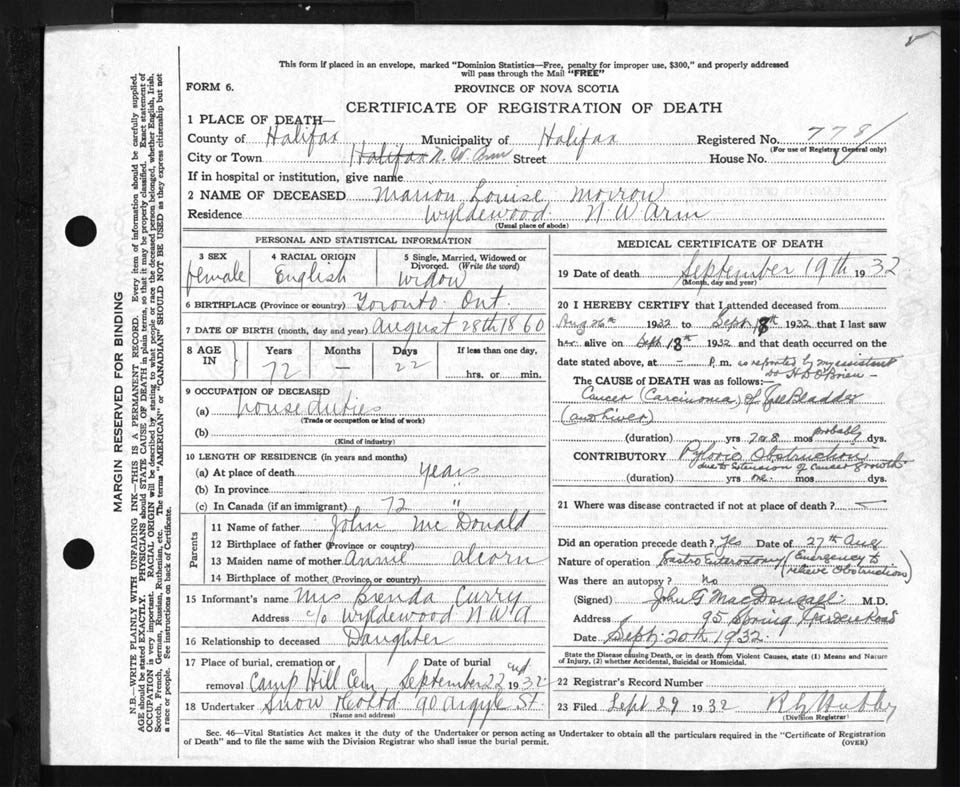 This form if placed in an envelope, marked "Dominion Statistics—Free, penalty for improper use, $300," and properly addressed
will pass through the Mail "FREE"
FORM 6.
PROVINCE OF NOVA SCOTIA
CERTIFICATE OF REGISTRATION OF DEATH
1 PLACE OF DEATH—
County of Halifax Municipality of Halifax Registered No. 778
(For use of Registrar General only)
City or Town Halifax N.W. Arm Street House No.
If in hospital or institution, give name
2 NAME OF DECEASED Marion Louise Morrow
Residence Wyldewood N W Arm
(Usual place of abode)
PERSONAL AND STATISTICAL INFORMATION
3 SEX 4 RACIAL ORIGIN 5 Single, Married, Widowed or
Divorced. (Write the word)
female English Widow
6 BIRTHPLACE (Province or country) Toronto Ont.
7 DATE OF BIRTH (month, day and year) August 28th 1860
8 AGE IN Years Months Days If less than one day,
72 — 22 hrs. or min.
9 OCCUPATION OF DECEASED
(a) house duties
(Trade or occupation or kind of work)
(b)
(Kind of industry)
10 LENGTH OF RESIDENCE (in years and months)
(a) At place of death years
(b) In province "
(c) In Canada (if an immigrant) 72 "
Parents
11 Name of father John McDonald
12 Birthplace of father (Province or country)
13 Maiden name of mother Annie Alcorn
14 Birthplace of mother (Province, or country)
15 Informant's name Mrs Brenda Curry
Address c/o Wyldewood N W A
16 Relationship to deceased Daughter
17 Place of burial, cremation or Date of burial
removal Camp Hill Cem September 22 1932
18 Undertaker Snow &Co Ltd 90 Argyle St.
(Name and address)
MEDICAL CERTIFICATE OF DEATH
19 Date of death September 19th 1932
(Month, day and year)
20 I HEREBY CERTIFY that I attended deceased from
Aug 26th 1932 to Sept. 18th 1932 that I last saw
her alive on Sept. 18th 1932 and that death occurred on the
date stated above, at — P. m. as reported by my assistant
Dr H D O'Brien —
The CAUSE OF DEATH was as follows:—
Cancer (Carcinoma) of Gall Bladder
(and Liver)
(duration) yrs 7 or 8 mos probably dys.
CONTRIBUTORY Pyloric Obstruction
due to extension of cancer growth
(duration) yrs one mos dys.
21 Where was disease contracted if not at place of death? —
Did an operation precede death? Yes Date of 27th Aug
Nature of operation Gastro Enterostomy (Emergency to
relieve Obstruction)
Was there an autopsy? No
(Signed) John G MacDougall M.D.
Address 95 Spring Garden Road
Date Sept. 20th 1932.
State the Disease causing Death, or in death from Violent Causes, state (1) Means and Nature
of Injury, (2) whether Accidental, Suicidal or Homicidal.
22 Registrar's Record Number
23 Filed Sept 29 1932
(Division Registrar)
Sec. 46—Vital Statistics Act makes it the duty of the Undertaker or person acting as Undertaker to obtain all the particulars required in the "Certificate of Registration
of Death" and to file the same with the Division Registrar who shall issue the burial permit.
(OVER)
MARGIN RESERVED FOR BINDING
N.B.—WRITE PLAINLY WITH UNFADING INK—THIS IS A PERMANENT RECORD. Every item of information should be carefully supplied.
AGE should be stated EXACTLY. PHYSICIANS should STATE CAUSE OF DEATH in plain terms, so that it may be properly classified. Exact statement of
OCCUPATION is very important. RACIAL ORIGIN will be described by stating to what people or race the deceased person belonged, whether English, Irish,
Scotch, French, German, Russian, Ruthenian, etc. The terms "AMERICAN" or "CANADIAN" SHOULD NOT BE USED as they express citizenship but not
a race or people. See instructions on back of Certificate.